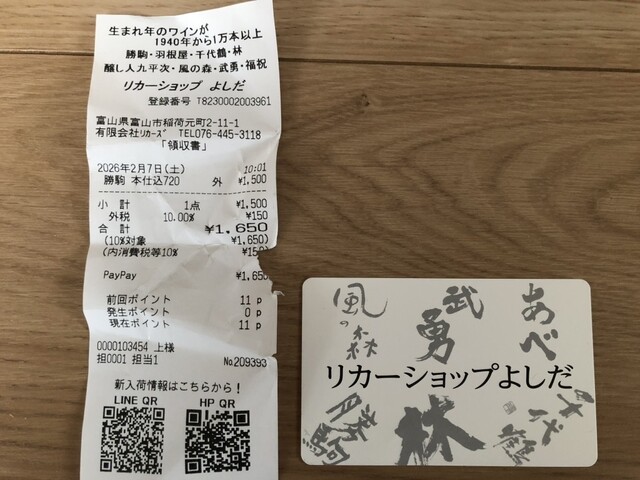 生まれ年のワインが
1940年から1万本以上
勝駒・羽根屋・千代鶴・林
醸し人九平次・風の森・武勇・福祝
リカーショップ よしだ
登録番号 T8230002003961
富山県富山市稲荷元町2-11-1
有限会社ﾘｶｰｽﾞ TEL076-445-3118
「領収書」
2026年2月7日(土) 10:01
勝駒 本仕込720 外 ¥1,500
小 計 1点 ¥1,500
外税 10.00% ¥150
合 計 ¥1,650
(10%対象 ¥1,650)
(内消費税等10% ¥150
PayPay ¥1,650
前回ポイント 11 p
発生ポイント 0 p
現在ポイント 11 p
0000103454 上様
担0001 担当1 No.209393
新入荷情報はこちらから!
LINE QR HP QR
風の森
武勇
あべ
リカーショップよしだ
勝駒
林
千代鶴